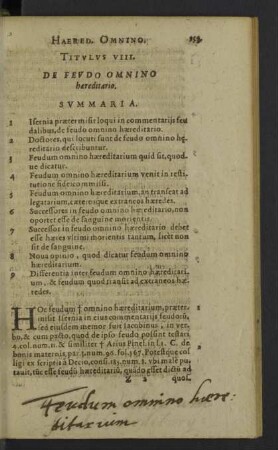 HAERED. OMNINO. 153
TITVLVS VIII.
DE FEVDO OMNINO
hæreditario.
SVMMARIA.
1 Isernia prætermisit loqui in commentarijs feu
dalibus, de feudo omnino hæreditario.
2 Doctores, qui locuti sunt de feudo omnino hę
reditario describuntur.
3 Feudum omnino hæreditarium quid sit, quod-
ue dicatur.
4 Feudum omnino hæreditarium venit in resti-
tutione fideicommissi.
5 Feudum omnino hæreditarium, an transeat ad
legatarium, cæterosque extraneos hæredes.
6 Successores in feudo omnino hæreditario, non
oportet esse de sanguine morientis.
7 Successor in feudo omnino hæreditario debet
esse hæres vltimi morientis tantum, licet non
sit de sanguine.
8 Noua opinio, quod dicatur feudum omnino
hæreditarium.
9 Differentia inter feudum omnino hæreditari-
um, & feudum quod transit ad extraneos hæ-
redes.
1 HOc feudum † omnino hæreditarium, præter-
misit Isernia in eius commentarijs feudorū,
sed eiusdem memor fuit Iacobinus, in ver-
bo, & cum pacto, quod de ipso feudo possint testari,
4. col. num. 11. & similiter † Arius Pinel. in l. 1. C. de
bonis maternis par. 3. num. 90. fol. 167. Potestque col
ligi ex scriptis à Decio, consi. 13. num. 2. vbi malè pu-
tauit, tūc esse feudū hæreditariū, quādo esset dictū ad
Z 2 quos.
Feudum omnino hære-
ditarium